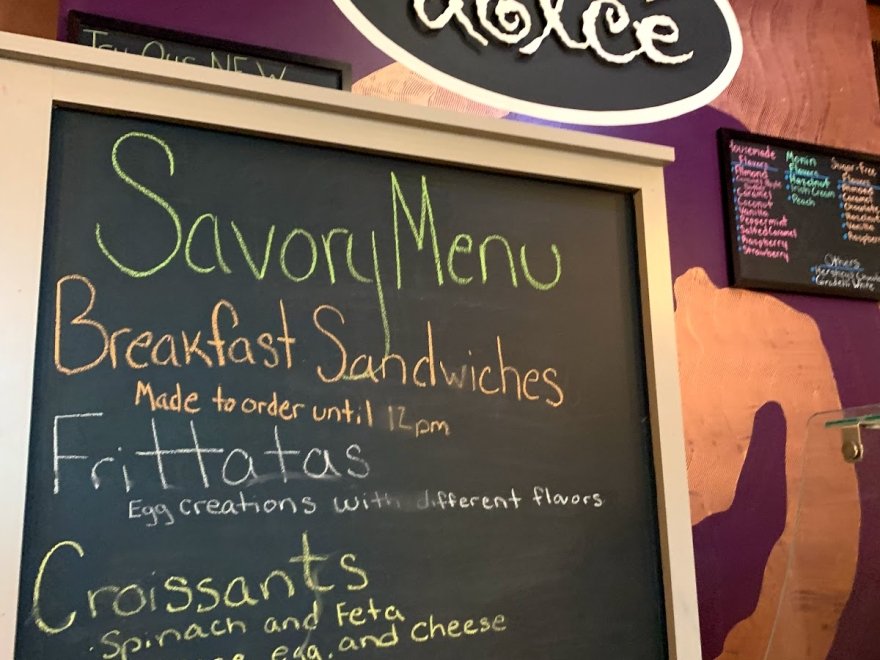 Try Our NEW
dolcé
Savory Menu
Breakfast Sandwiches
Made to order until 12pm
Frittatas
Egg creations with different flavors
Croissants
Spinach and Feta
egg, and cheese
Housemade
Flavors
Almond
Caramel
Coconut
Vanilla
Peppermint
Salted Caramel
Raspberry
Strawberry
Monin
Flavors
Hazelnut
Irish Cream
Peach
Sugar-Free
Flavors
Almond
Caramel
Vanilla
Others